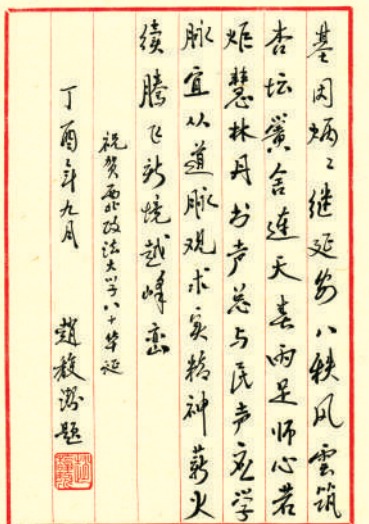 基因炳〻继延安八秩风云筑
杏坛黉舍连天春雨足师心若
炬慧林丹书声总与民声应学
脉宜从道脉观求实精神薪火
续腾飞新境越峰峦
祝贺西北政法大学八十华诞
丁酉年九月 趙馥潔题